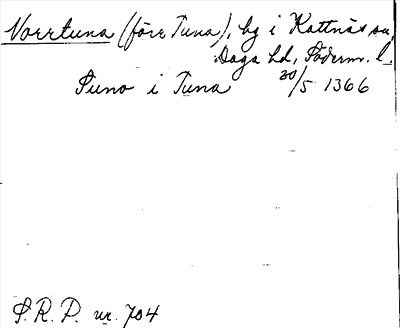 Norrtuna (förr Tuna), by i Kattnäs sn,
Daga hd, Söderm. l.
Suno i Tuna 20/5 1366
S.R.P. nr. 704